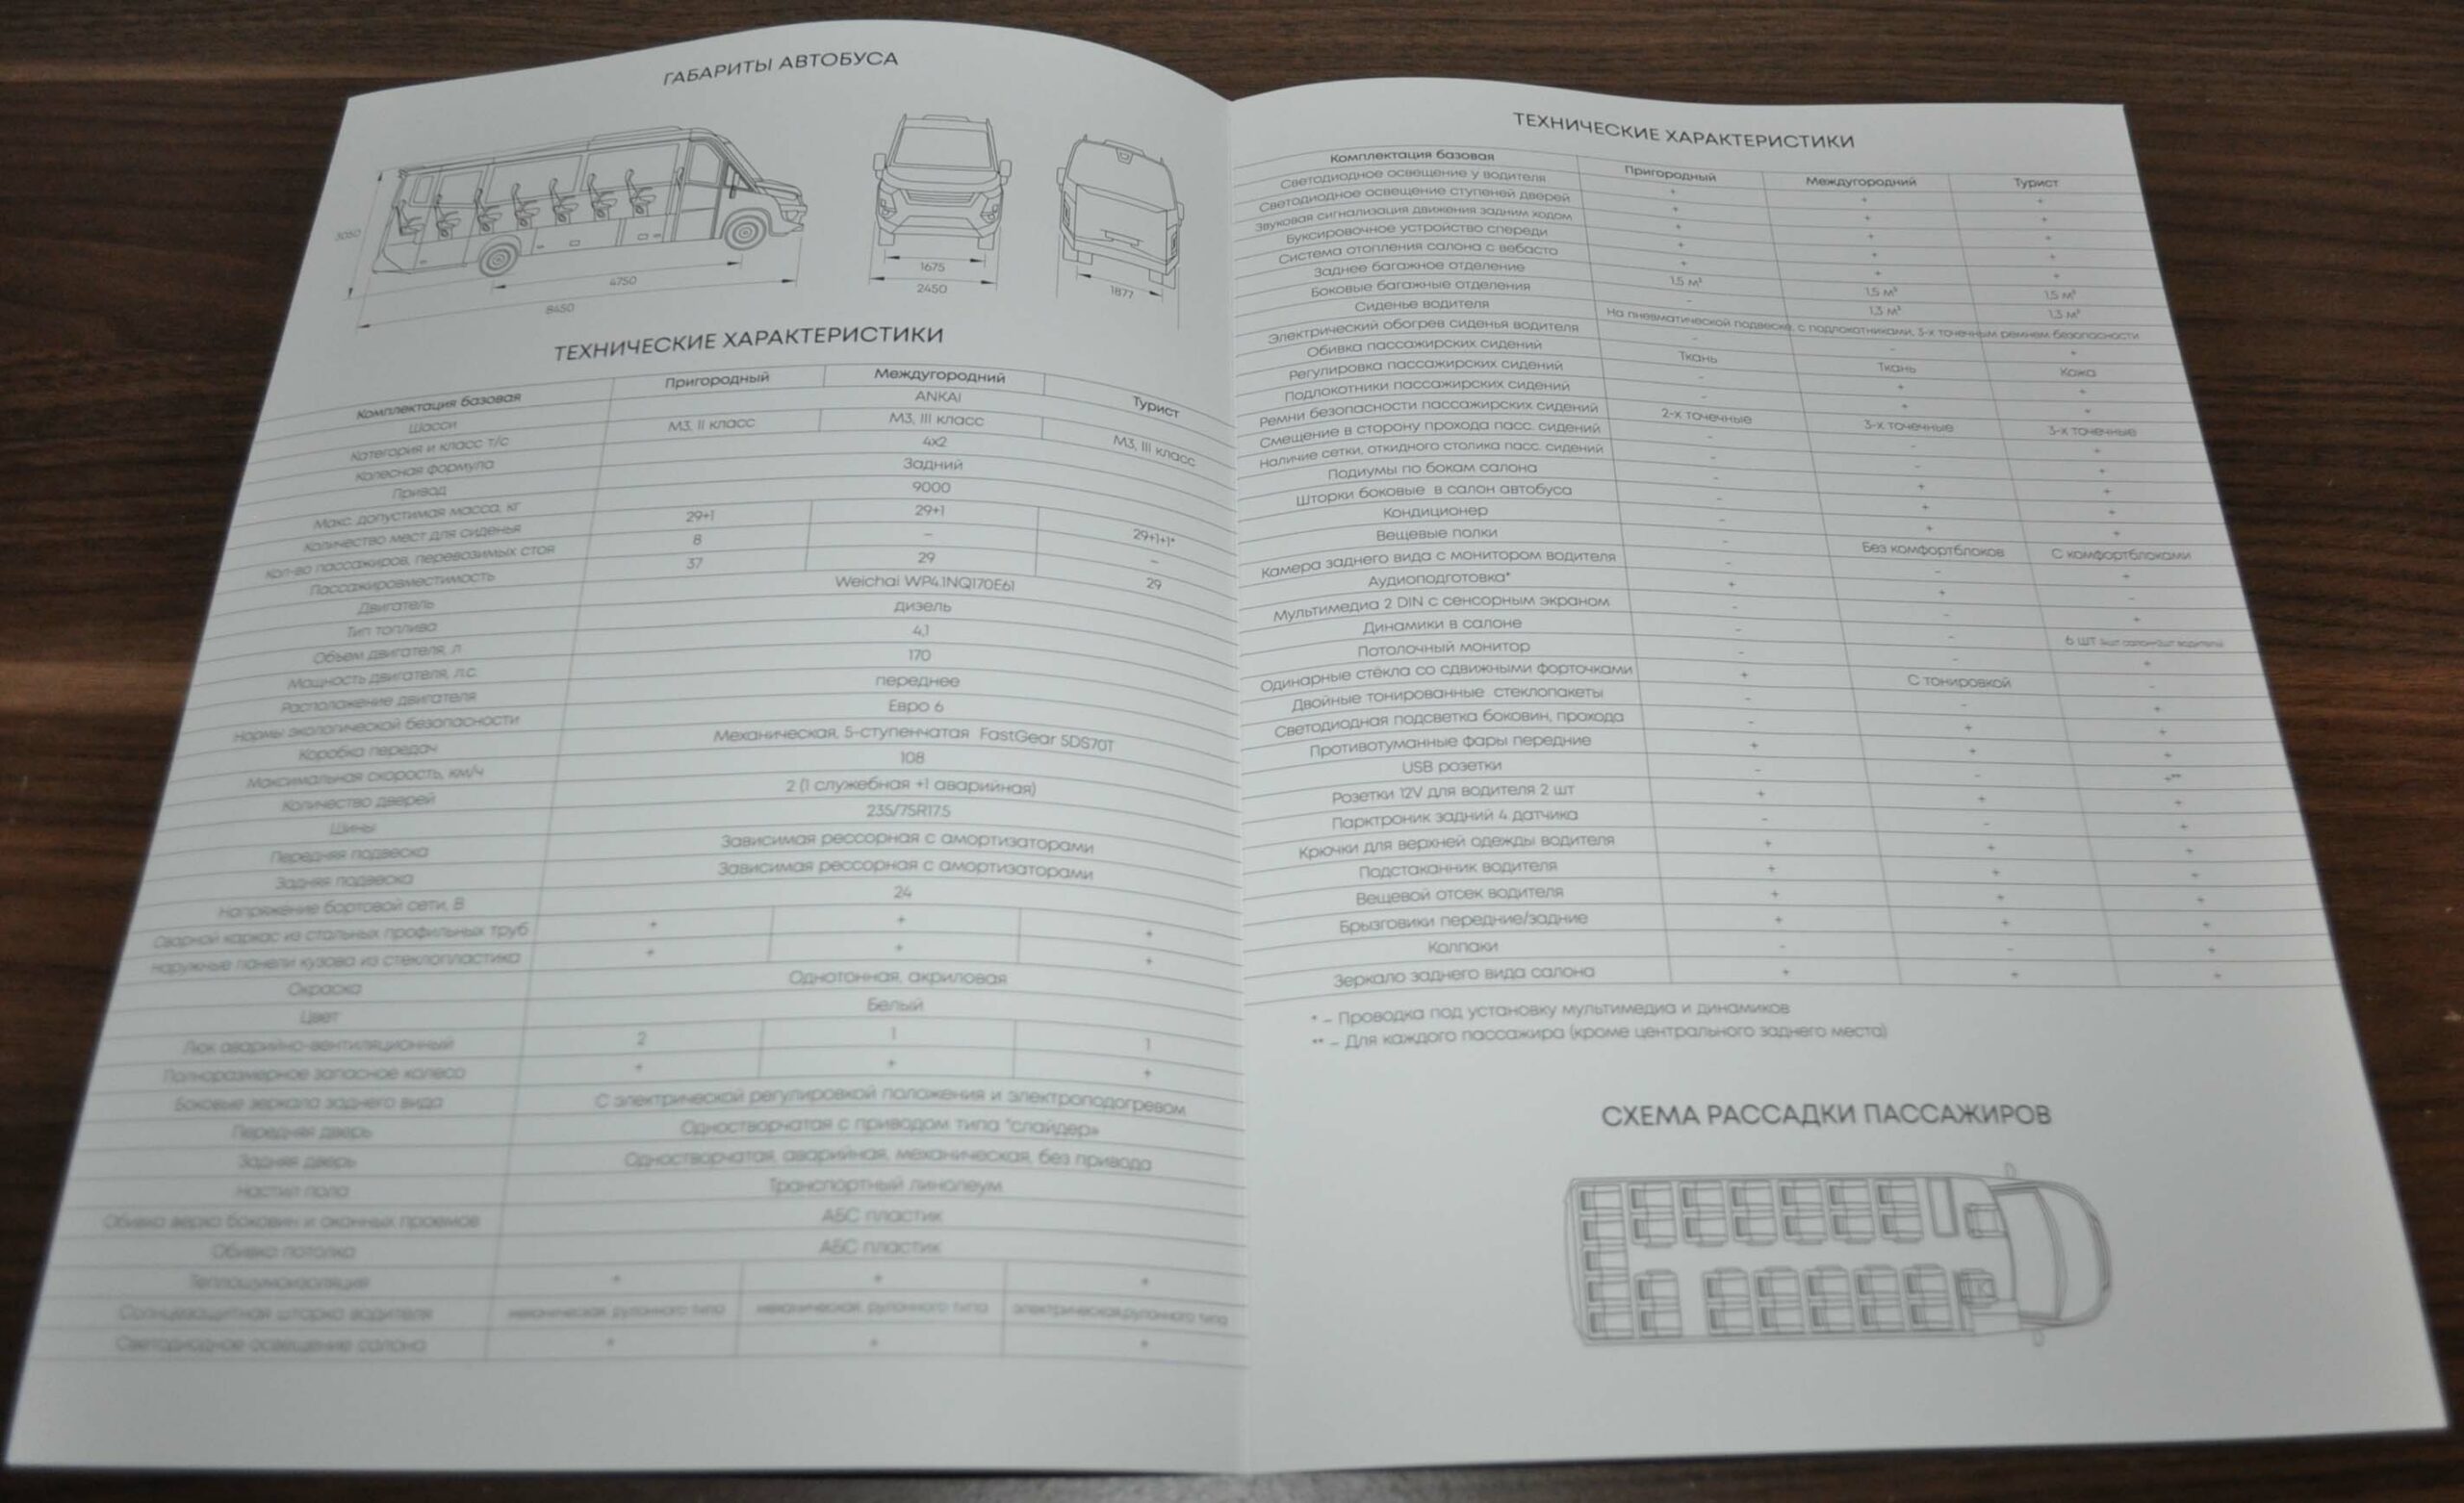 ГАБАРИТЫ АВТОБУСА
3050
4750
8450
1675
2450
1877
ТЕХНИЧЕСКИЕ ХАРАКТЕРИСТИКИ
Комплектация базовая Пригородный Междугородний Турист
Шасси ANKAI
Категория и класс т/с М3, II класс М3, III класс М3, III класс
Колесная формула 4x2
Привод Задний
Макс. допустимая масса, кг 9000
Количество мест для сиденья 29+1 29+1 29+1+1*
Кол-во пассажиров, перевозимых стоя 8 – –
Пассажировместимость 37 29 29
Двигатель Weichai WP4.1NQ170E61
Тип топлива дизель
Объем двигателя, л 4,1
Мощность двигателя, л.с. 170
Расположение двигателя переднее
Нормы экологической безопасности Евро 6
Коробка передач Механическая, 5-ступенчатая FastGear 5DS70T
Максимальная скорость, км/ч 108
Количество дверей 2 (1 служебная +1 аварийная)
Шины 235/75R17.5
Передняя подвеска Зависимая рессорная с амортизаторами
Задняя подвеска Зависимая рессорная с амортизаторами
Напряжение бортовой сети, В 24
Сварной каркас из стальных профильных труб + + +
Наружные панели кузова из стеклопластика + + +
Окраска Однотонная, акриловая
Цвет Белый
Люк аварийно-вентиляционный 2 1 1
Полноразмерное запасное колесо + + +
Боковые зеркала заднего вида С электрической регулировкой положения и электроподогревом
Передняя дверь Одностворчатая с приводом типа "слайдер»
Задняя дверь Одностворчатая, аварийная, механическая, без привода
Настил пола Транспортный линолеум
Обивка верха боковин и оконных проемов АБС пластик
Обивка потолка АБС пластик
Теплошумоизоляция + + +
Солнцезащитная шторка водителя механическая, рулонного типа механическая, рулонного типа электрическая,рулонного типа
Светодиодное освещение салона + + +
ТЕХНИЧЕСКИЕ ХАРАКТЕРИСТИКИ
Комплектация базовая Пригородный Междугородний Турист
Светодиодное освещение у водителя + + +
Светодиодное освещение ступеней дверей + + +
Звуковая сигнализация движения задним ходом + + +
Буксировочное устройство спереди + + +
Система отопления салона с вебасто + + +
Заднее багажное отделение 1,5 м³ 1,5 м³ 1,5 м³
Боковые багажные отделения – 1,3 м³ 1,3 м³
Сиденье водителя На пневматической подвеске, с подлокотниками, 3-х точечным ремнем безопасности
Электрический обогрев сиденья водителя – – +
Обивка пассажирских сидений Ткань Ткань Кожа
Регулировка пассажирских сидений – + +
Подлокотники пассажирских сидений – + +
Ремни безопасности пассажирских сидений 2-х точечные 3-х точечные 3-х точечные
Смещение в сторону прохода пасс. сидений – – +
Наличие сетки, откидного столика пасс. сидений – – +
Подиумы по бокам салона – + +
Шторки боковые в салон автобуса – + +
Кондиционер – + +
Вещевые полки – Без комфортблоков С комфортблоками
Камера заднего вида с монитором водителя – – +
Аудиоподготовка* + + –
Мультимедиа 2 DIN с сенсорным экраном – – +
Динамики в салоне – – 6 ШТ
Потолочный монитор – – +
Одинарные стёкла со сдвижными форточками + С тонировкой –
Двойные тонированные стеклопакеты – – +
Светодиодная подсветка боковин, прохода – + +
Противотуманные фары передние + + +
USB розетки – – +**
Розетки 12V для водителя 2 шт + + +
Парктроник задний 4 датчика – – +
Крючки для верхней одежды водителя + + +
Подстаканник водителя + + +
Вещевой отсек водителя + + +
Брызговики передние/задние + + +
Колпаки – – +
Зеркало заднего вида салона + + +
* – Проводка под установку мультимедиа и динамиков
** – Для каждого пассажира (кроме центрального заднего места)
СХЕМА РАССАДКИ ПАССАЖИРОВ